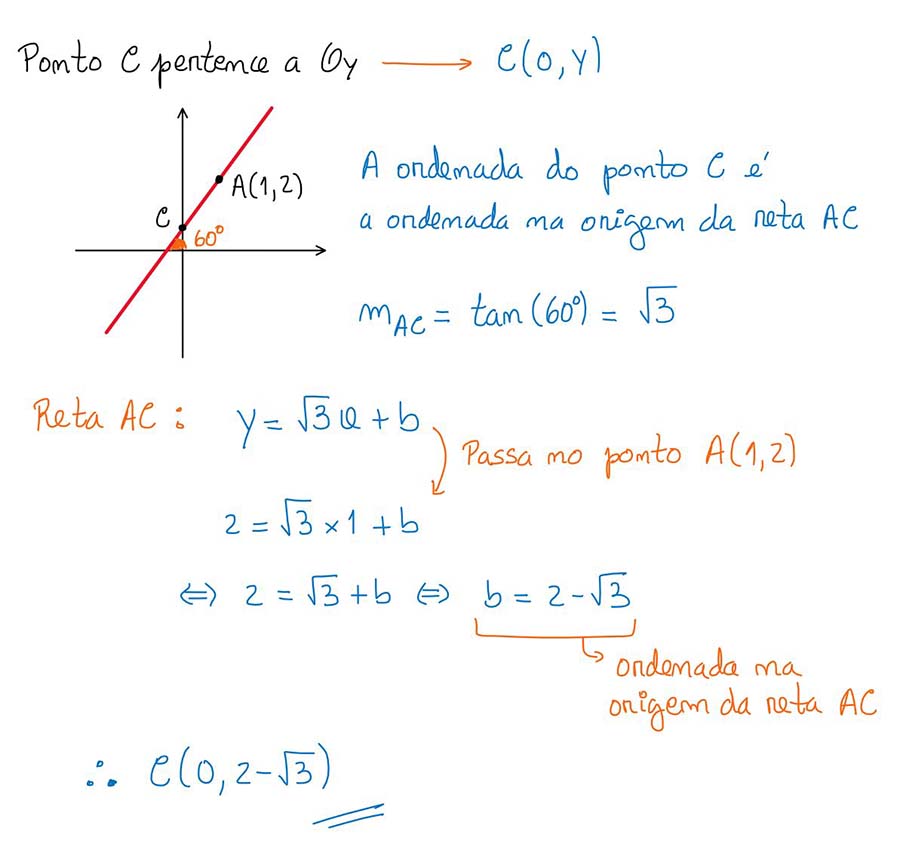 Ponto C pertence a Oy → C(0,y)
A(1,2)
C
60º
A ordenada do ponto C é
a ordenada na origem da reta AC
m_AC = tan(60º) = √3
Reta AC: y = √3x + b
Passa no ponto A(1,2)
2 = √3 × 1 + b
⇔ 2 = √3 + b ⇔ b = 2 - √3
ordenada na
origem da reta AC
∴ C(0, 2-√3)